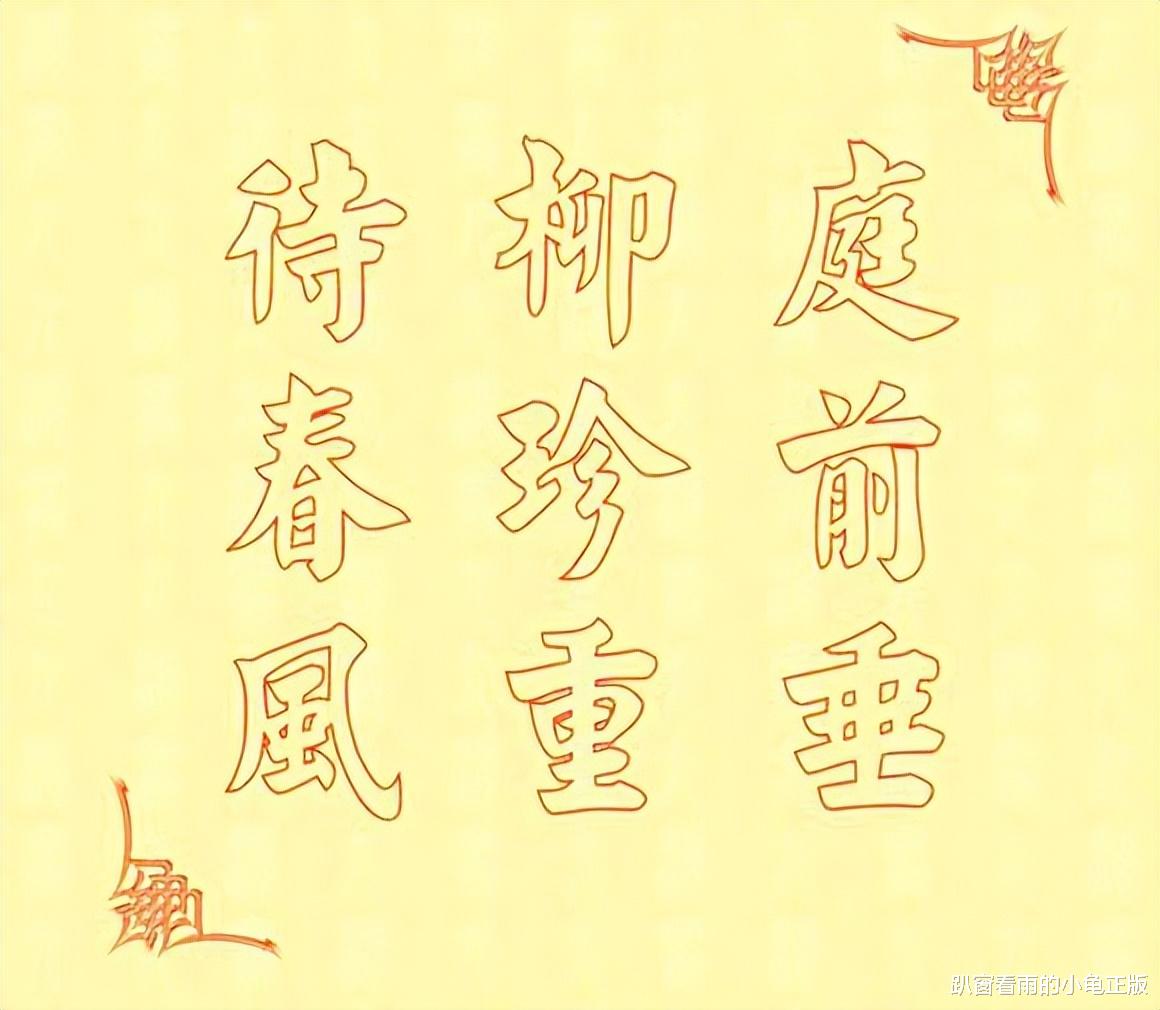 庭前垂
柳珍重
待春風
趴窗看雨的小龟正版